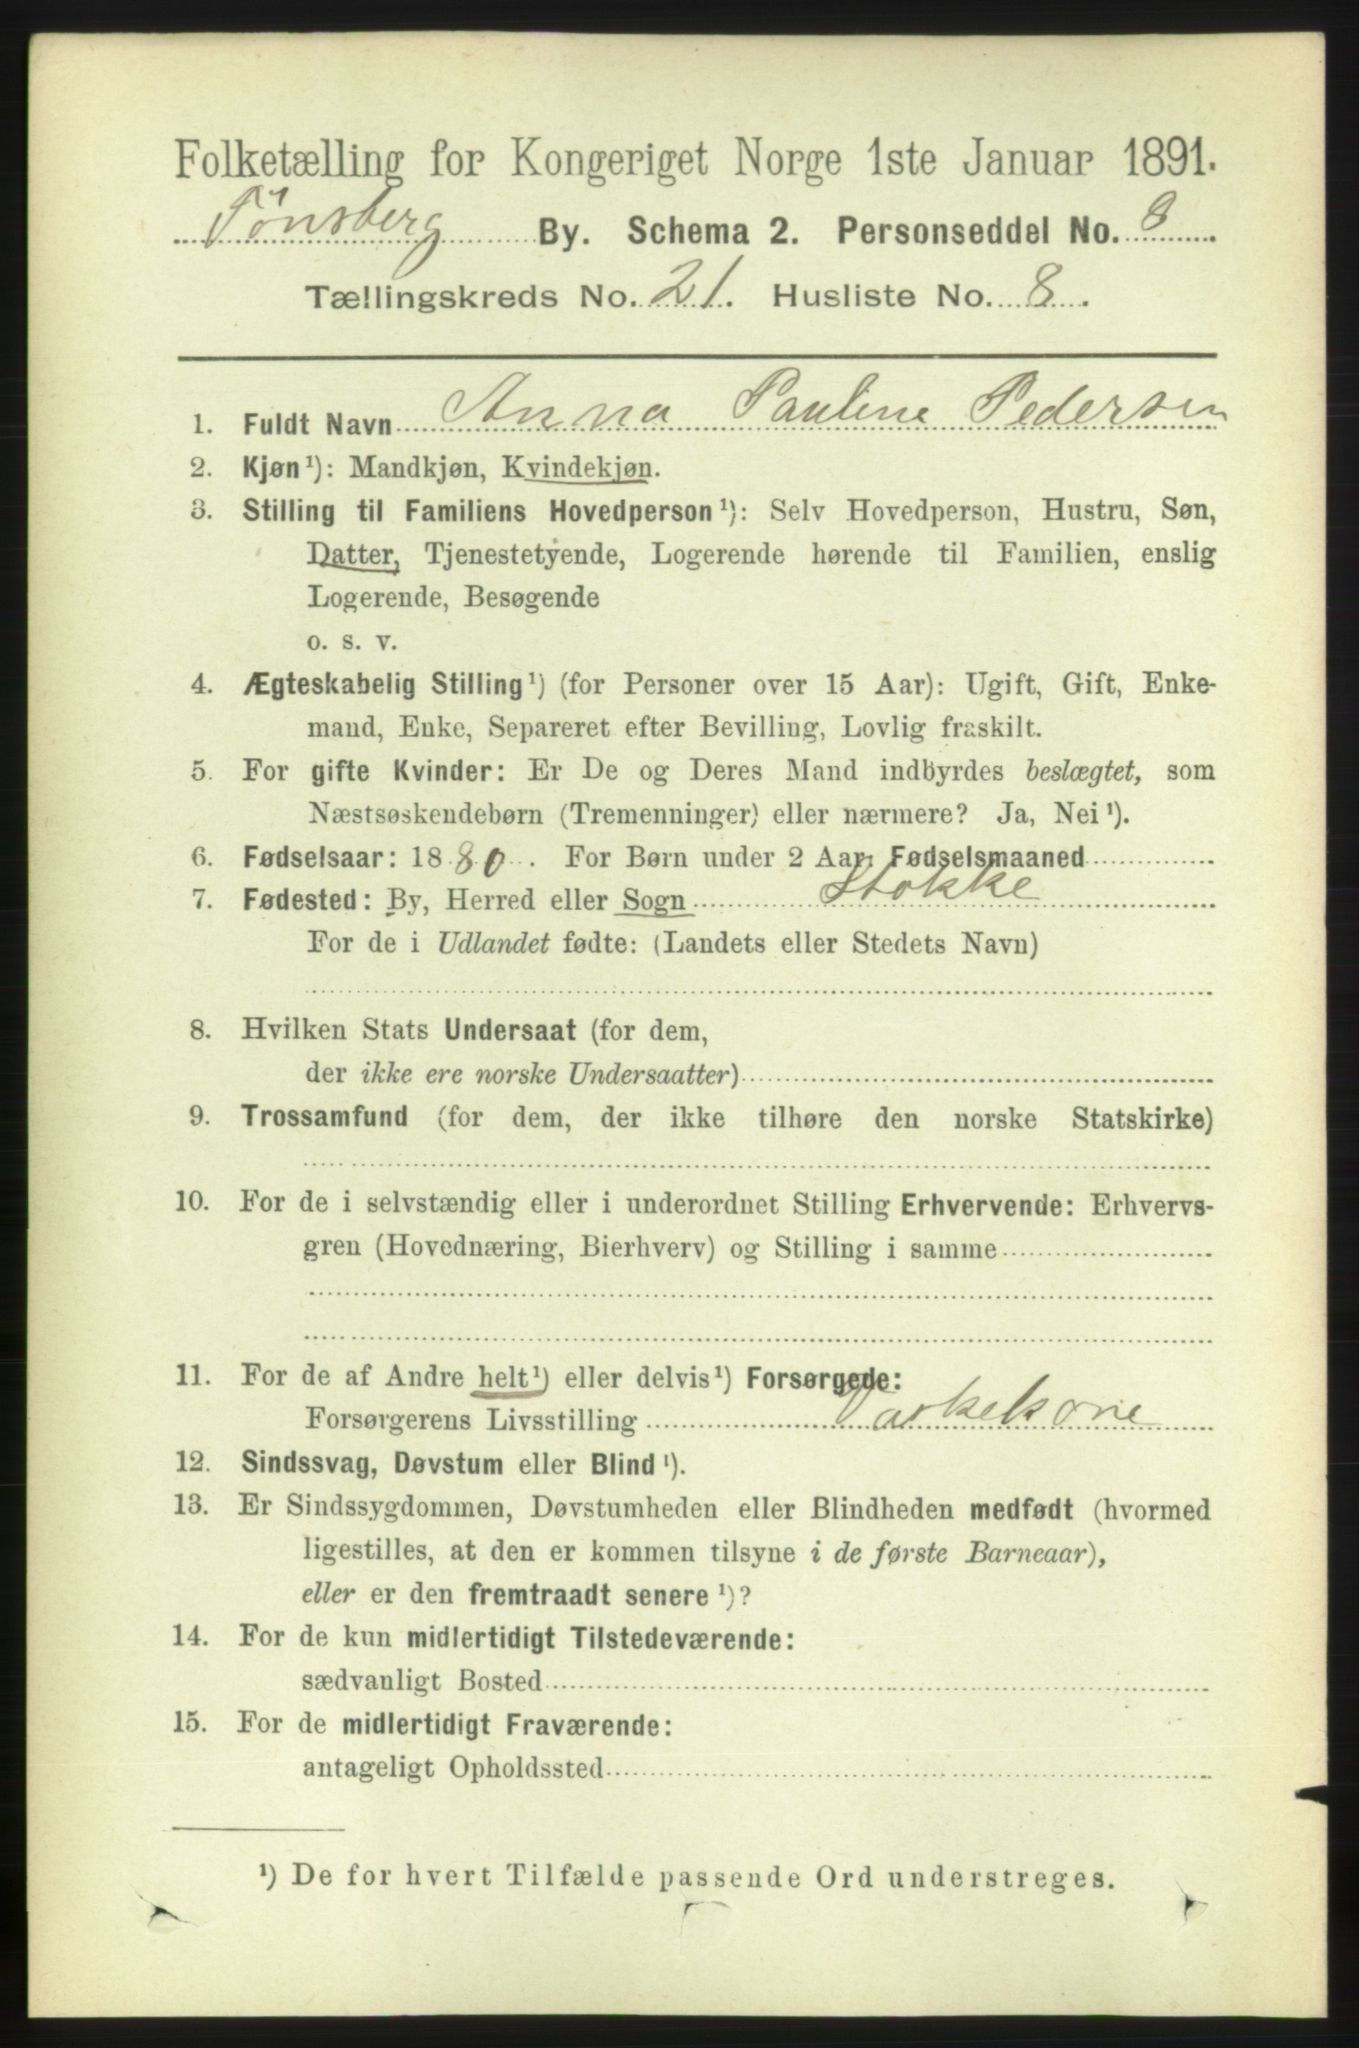 Folketælling for Kongeriget Norge 1ste Januar 1891.
Tønsberg By. Schema 2. Personseddel No. 8
Tællingskreds No. 21. Husliste No. 8.
1. Fuldt Navn Anna Pauline Pedersen
2. Kjøn¹): Mandkjøn, Kvindekjøn.
3. Stilling til Familiens Hovedperson¹): Selv Hovedperson, Hustru, Søn,
Datter, Tjenestetyende, Logerende hørende til Familien, enslig
Logerende, Besøgende
o. s. v.
4. Ægteskabelig Stilling¹) (for Personer over 15 Aar): Ugift, Gift, Enke-
mand, Enke, Separeret efter Bevilling, Lovlig fraskilt.
5. For gifte Kvinder: Er De og Deres Mand indbyrdes beslægtet, som
Næstsøskendebørn (Tremenninger) eller nærmere? Ja, Nei¹).
6. Fødselsaar: 1880. For Børn under 2 Aar, Fødselsmaaned
7. Fødested: By, Herred eller Sogn Stokke
For de i Udlandet fødte: (Landets eller Stedets Navn)
8. Hvilken Stats Undersaat (for dem,
der ikke ere norske Undersaatter)
9. Trossamfund (for dem, der ikke tilhøre den norske Statskirke)
10. For de i selvstændig eller i underordnet Stilling Erhvervende: Erhvervs-
gren (Hovednæring, Bierhverv) og Stilling i samme
11. For de af Andre helt¹) eller delvis¹) Forsørgede:
Forsørgerens Livsstilling Vaskekone
12. Sindssvag, Døvstum eller Blind¹).
13. Er Sindssygdommen, Døvstumheden eller Blindheden medfødt (hvormed
ligestilles, at den er kommen tilsyne i de første Barneaar),
eller er den fremtraadt senere¹)?
14. For de kun midlertidigt Tilstedeværende:
sædvanligt Bosted
15. For de midlertidigt Fraværende:
antageligt Opholdssted
¹) De for hvert Tilfælde passende Ord understreges.